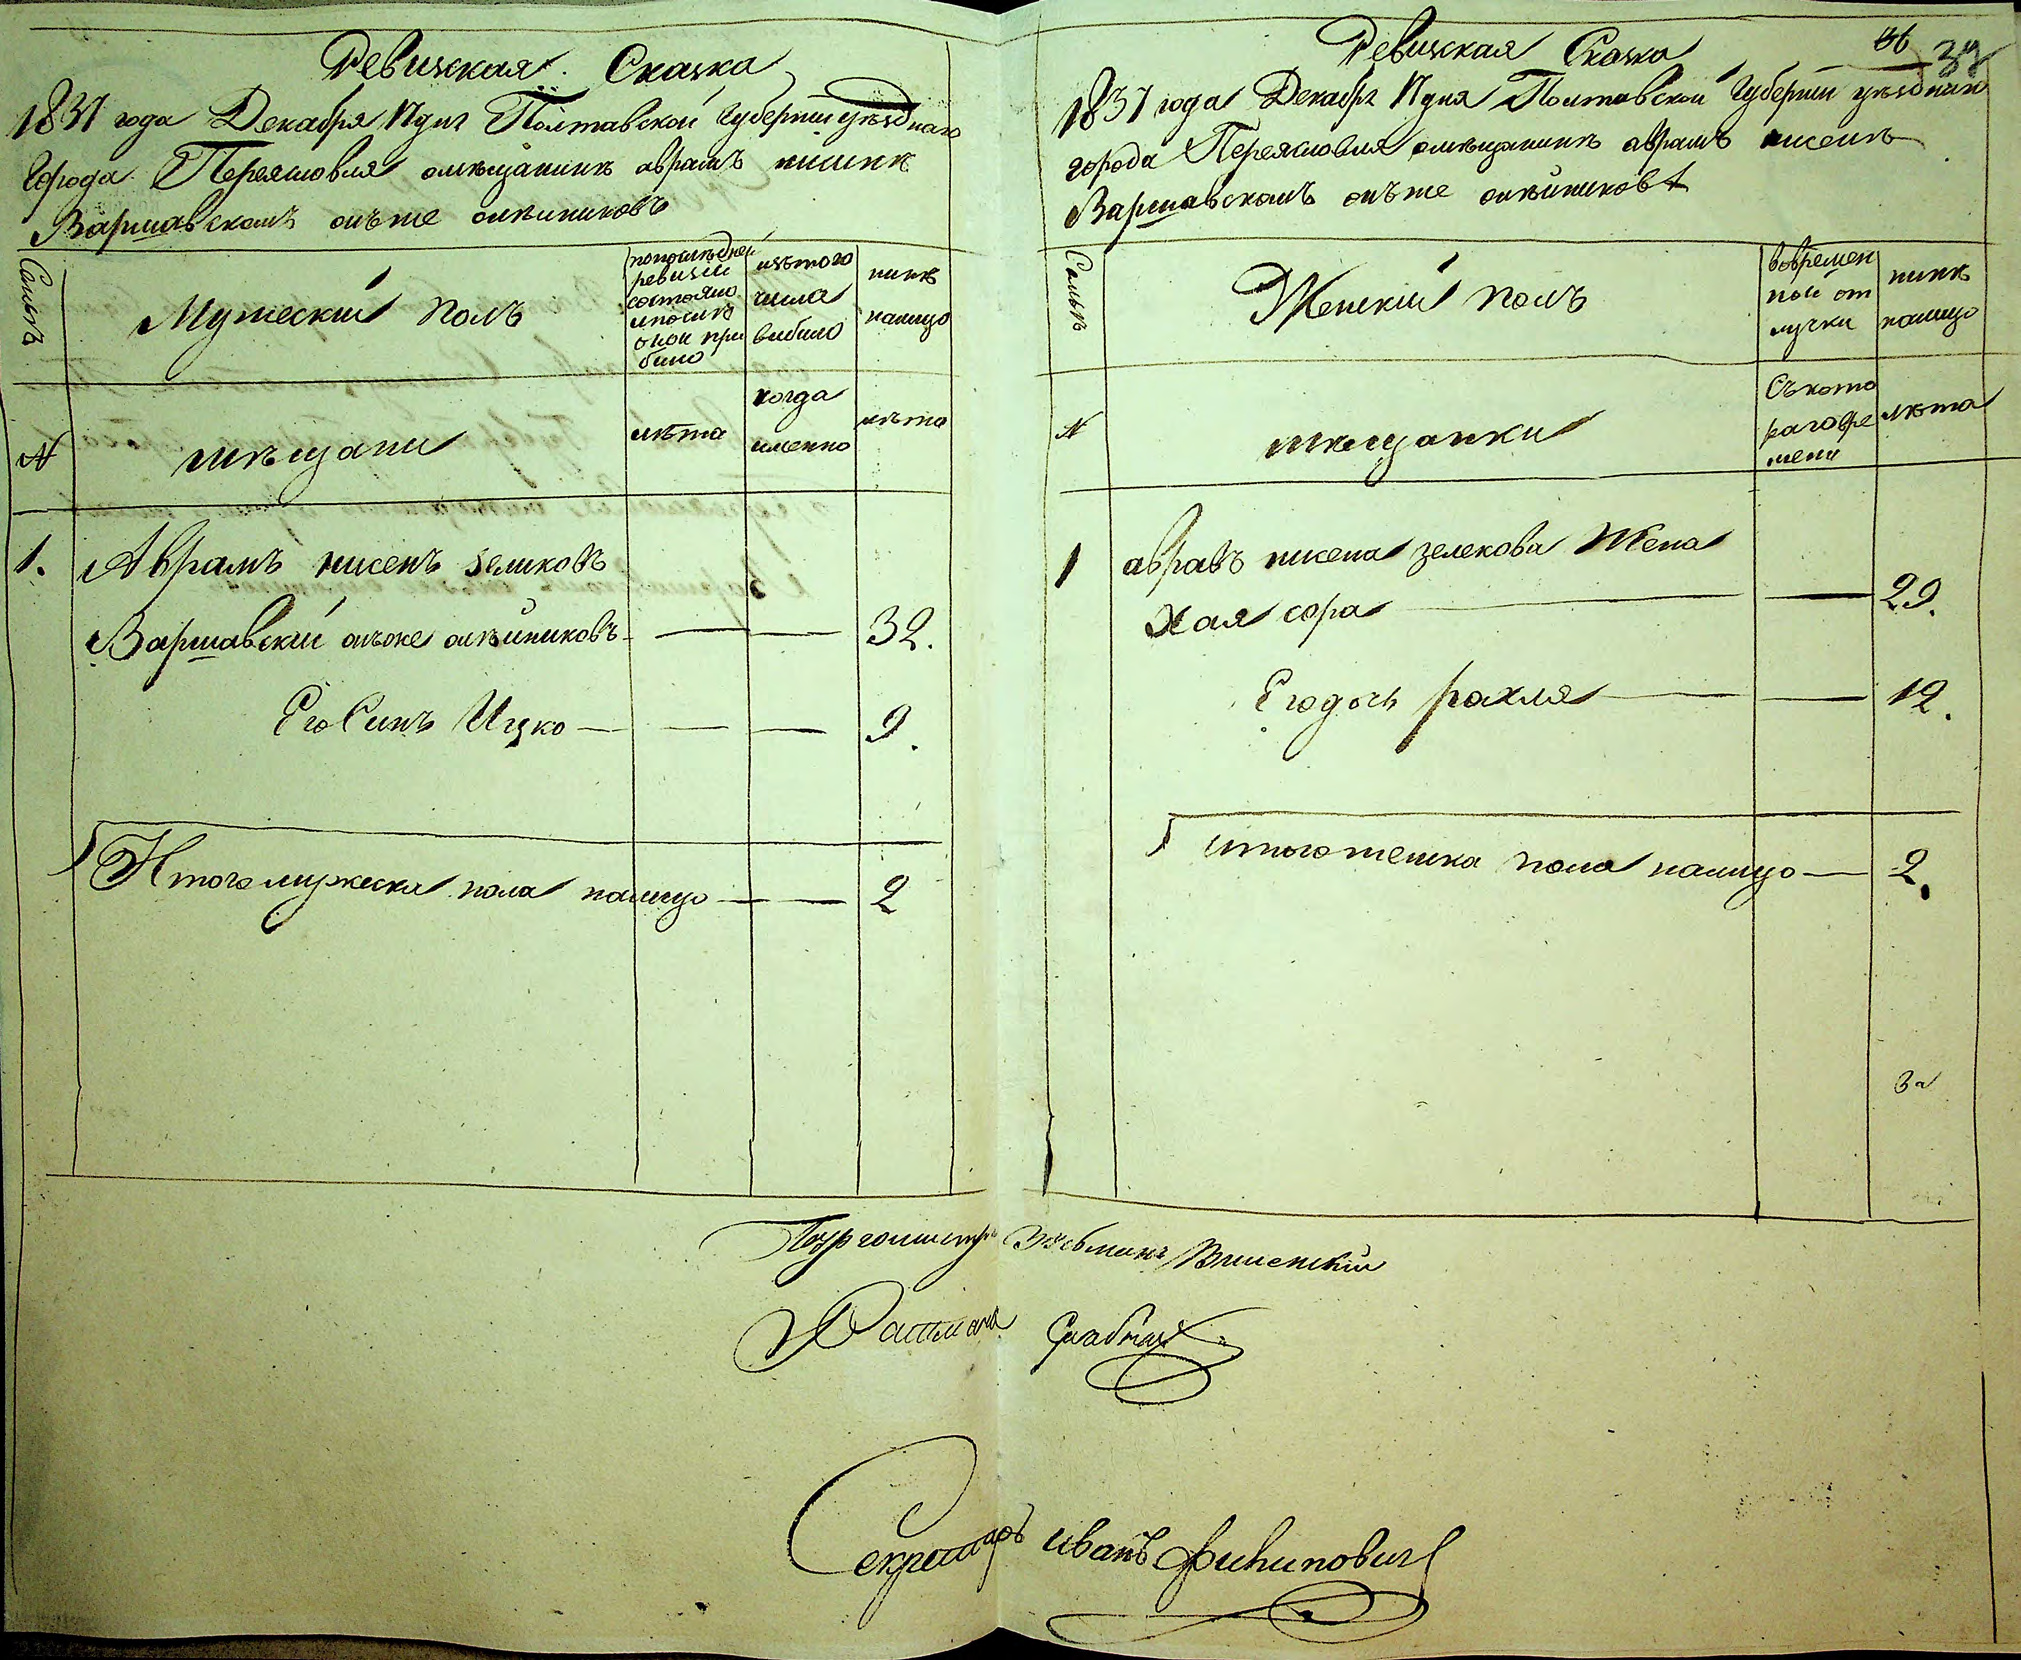 Ревижская Сказка
1837 года Декабря 11 дня Полтавской Губернии уезднаго
Города Переяславля омещанине аврамъ нисене
Варшавскомъ онъже олейниковъ
Семья
Мужеский полъ
попоследней
ревизии
состояло
ипосле
оной при
было
изтого
числа
выбыло
ныне
налицо
N
мещани
лета
когда
именно
лета
1. Аврамъ нисенъ зеликовъ
Варшавский онъже олейниковъ — — 32.
Его Синъ Ицко — — — 9.
Итого мужеска пола налицо — — 2
Ревижская Сказка
39
1837 года Декабря 11 дня Полтавской Губернии уезднаго
города Переяславля омещанине аврамъ нисенъ
Варшавскомъ онъже олейниковъ
Семья
Женский полъ
вовремен
ной от
лучки
ныне
налицо
N
мещанки
Съкото
раговре
мени
лета
1 аврамъ нисена зелекова Жена
Хая сора — — 29.
Его дочь рахля — — 12.
итого женска пола налицо — 2.
Бургомистръ Вишенский
Ратманъ
Секретарь иванъ Филиповичъ